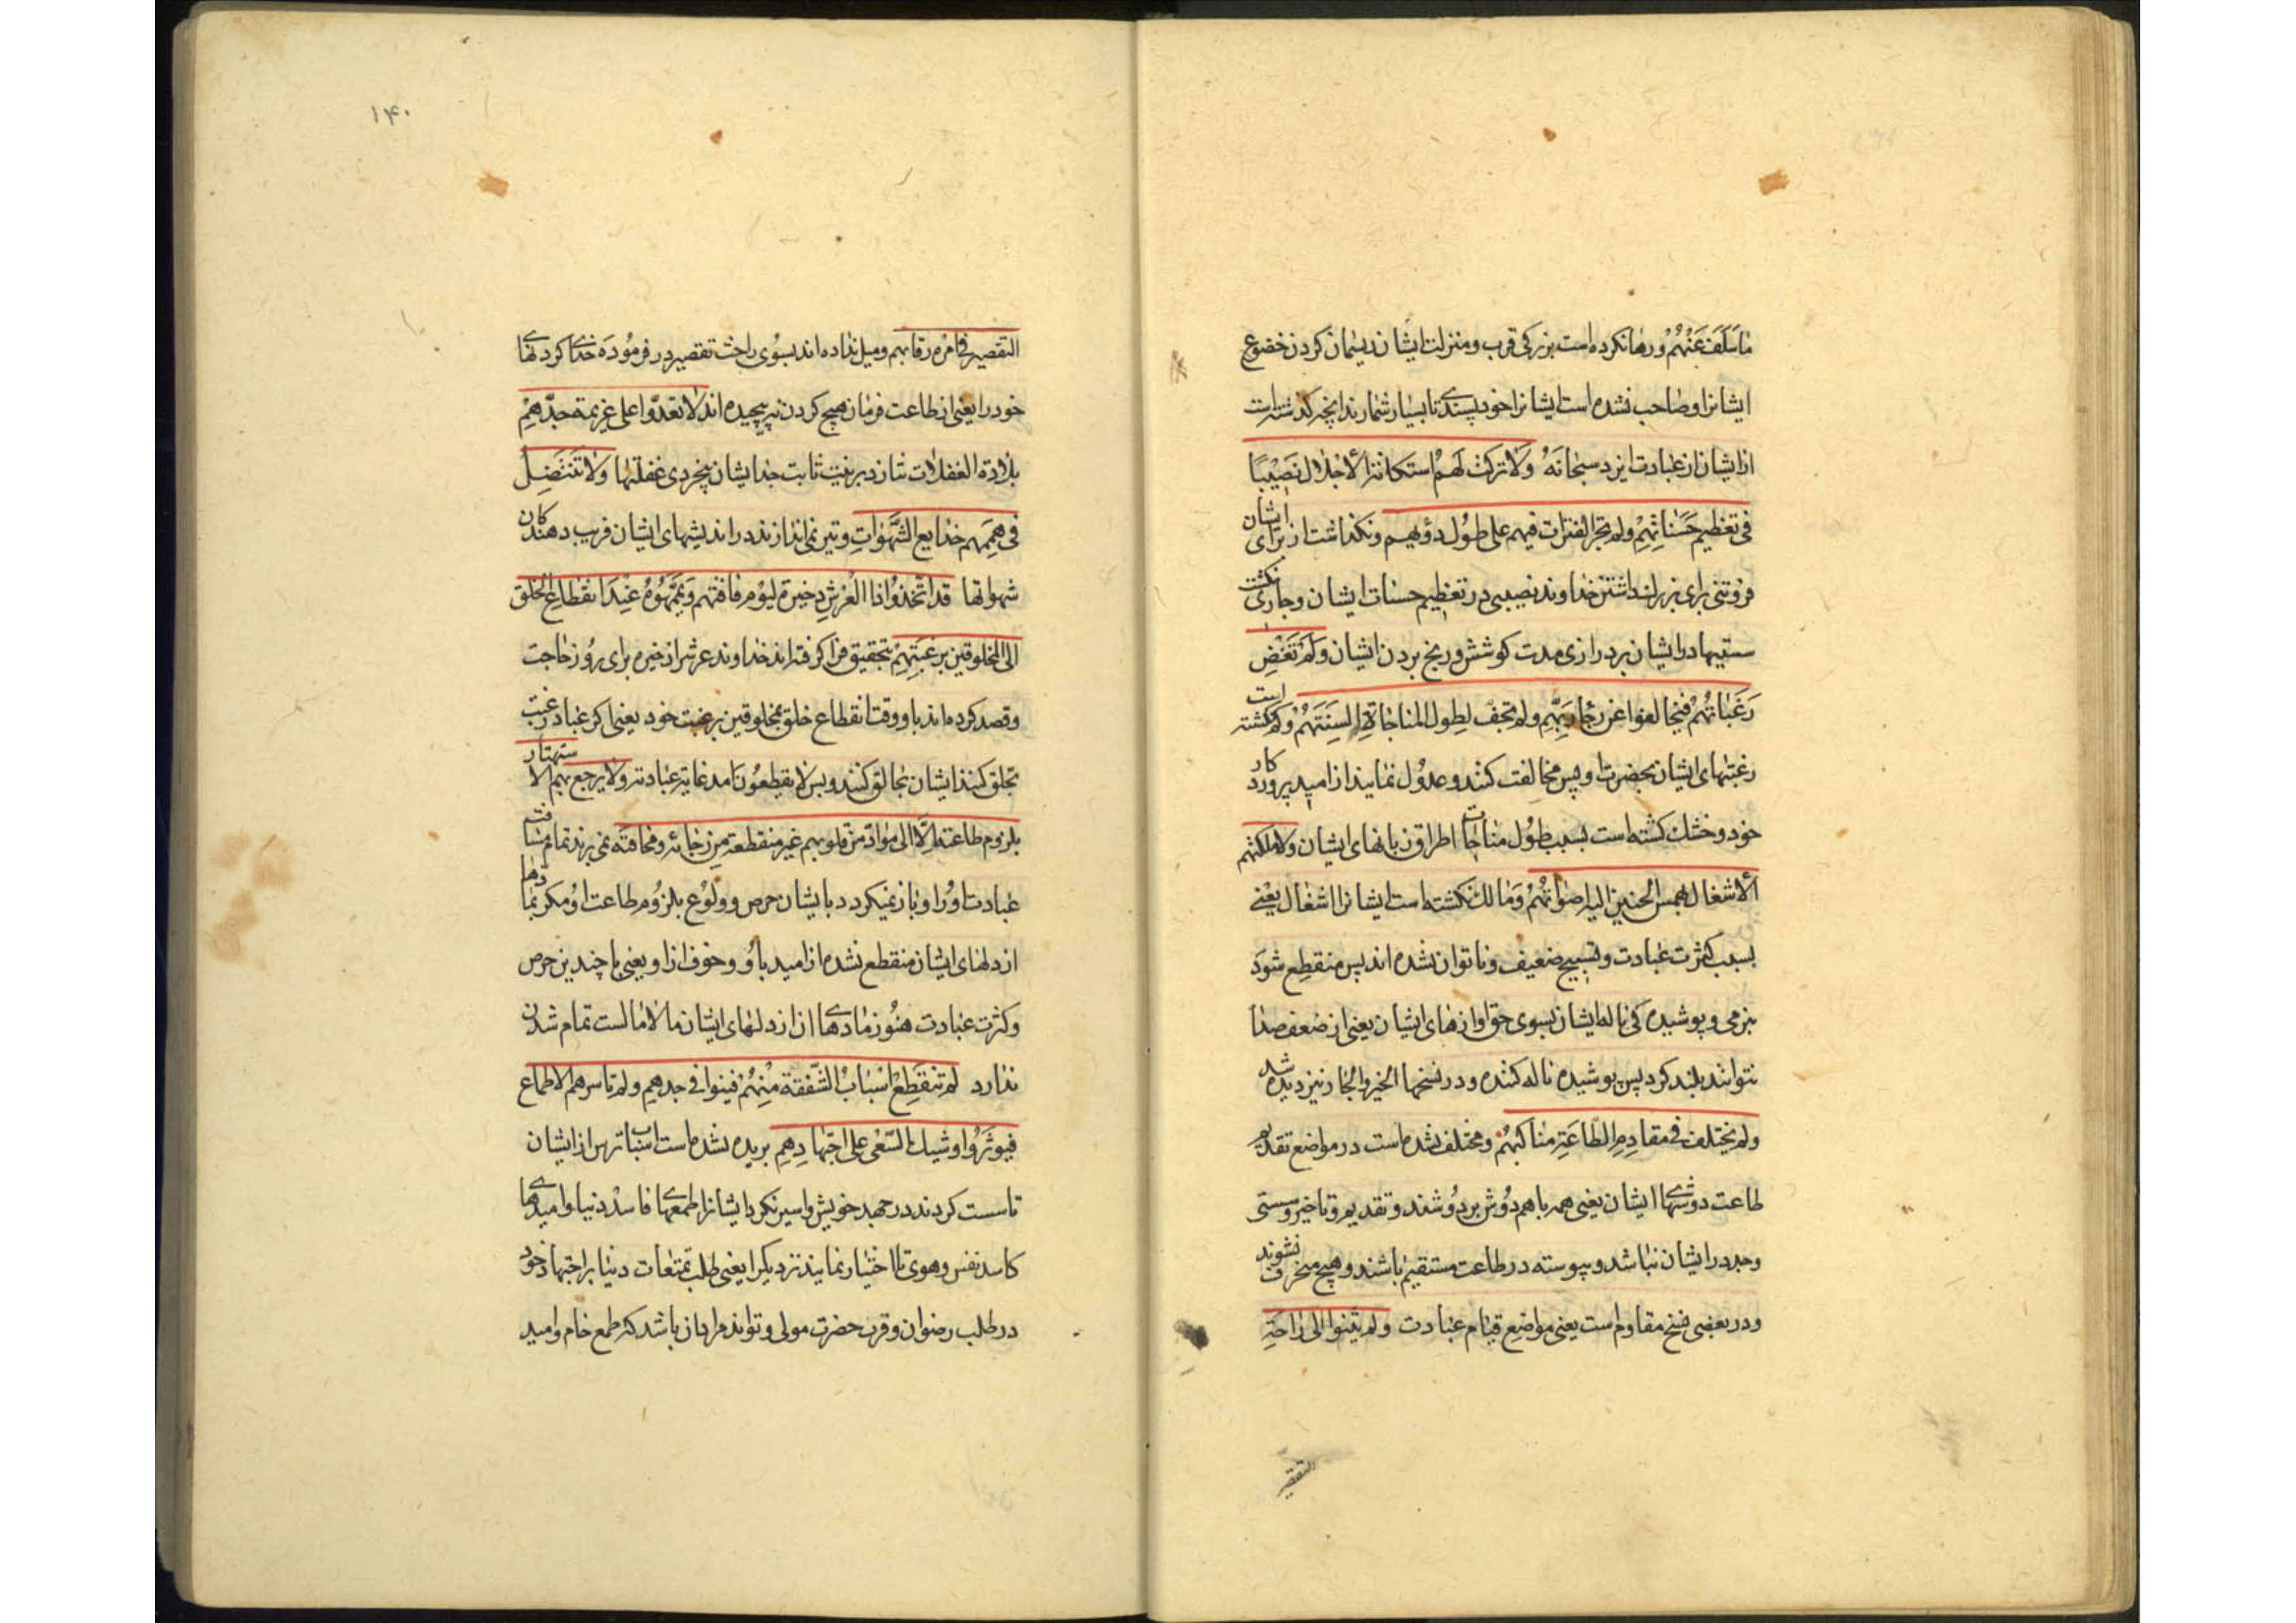 ما سَلَفَ عَنْهُمْ ورها نکرده است بزرکی قرب ومنزلت ایشان ریسمان کردن خضوع
ایشانرا وصاحب نشده است ایشانرا خود پسندی تا بسیار شمارند انچه کذشته است
از ایشان از عبادت ایزد سبحانهُ وَلا ترکت لَهم استکانة الاجلال نَصِیْبًا
فی تعظیم حَسَناتِهِمْ ولم تجر الفترات فیهم علی طُول دؤبهم ونکذاشت از برای ایشان
فروتنی برای بزرک داشتن خداوند نصیبی در تعظیم حسنات ایشان وجاری نکشت
سستیها در ایشان بر درازی مدت کوشش ورنج بردن ایشان وَلَم تَغِضْ
رَغَباتُهُمْ فیخالفوا عن رجاء رَبِّهِم ولم تجف لِطول المناجاة السِنَتَهُمْ وکم نکشته است
رغبتهای ایشان بحضرت او پس مخالفت کنند وعدُول نمایند از امید پروردکار
خود وخشک نکشته است بسبب طُول مناجات اطراف زبانهای ایشان ولا ملکتهم
الاشغال بهمس الحنین الیه اصواتُهُمْ وَمالک نکشته است ایشانرا اشغال یعنی
بسبب کثرت عبادت وتسبیح ضعیف وناتوان نشده اند پس منقطِع شوَد
بنرمی وپوشیده کی ناله ایشان بسوی حق اوازهای ایشان یعنی از ضعف صدا
نتوانند بلند کرد پس پوشیده ناله کننده ودر نسخها الخیر والجار نیز دیده شد
ولم یختلف فی مقادِم الطاعَتِه مناکبهُمْ ومختلف نشده است در مواضع تقدیم
طاعت دوشهای ایشان یعنی همه باهم دوُش بر دوُشند وتقدیم وتاخیر وسستی
وجد در ایشان نباشد وپیوسته در طاعت مستقیم باشند وهیچ منحرف نشوند
ودر بعضی نسخ مقاوم است یعنی مواضِع قیام عبادت ولم یثنوا الی راحَةِ
التقصیر
۱۴۰
التقصیر فی امره رقابهم ومیل نداده اند بسوُی راحت تقصیر در فرموُدَه خدای کردنهای
خود را یعنی از طاعت فرمان هیچ کردن نپیچیده اند ولا تعدوا علی عزیمة جدّهِمْ
بلادة الغفلات نتازد بر نیت ثابت جد ایشان بیخردی غفلتها ولا تَنتَضِلُ
فی هِمَمِهم خدایع الشَّهَواتِ وتیر نمی اندازند در اندیشهای ایشان فریب دهندکان
شهوتها قد اتّخذوُا ذا العَرْشِ ذخیرة لیوم فاقتهم وَیَمَّمُوهُ عِنْد انقطاع الخلق
الی المخلوقین برغبَتِهِمْ بتحقیق فرا کرفته اند خداوند عرش را ذخیره برای روُز حاجت
وقصد کرده اند باو وقت انقطاع خلق بمخلوقین برغبت خود یعنی اکر عباد رغبت
بخلق کنند ایشان بخالق کنند وبس لا یقطعوُن امد غایة عبادته ولا یرجع بهم الاستهتار
بلزوم طاعته اِلّا الی موادّ من قلوبهم غیر منقطعة مِن رجائه ومخافته نمی برند تمام مسافت
عبادت اوُرا وباز نمیکردد بایشان حرص وولوُع بلزوُم طاعت اوُ مکر بمادها
از دلهای ایشان منقطع نشده از امید باوُ وخوف از او یعنی با چندین حرص
وکثرت عبادت هنوُز مادهای ان از دلهای ایشان مالامالست تمام شدن
ندارد لم تنقَطِعْ اسْبَابُ الشّفقة مِنْهُمْ فینوا فی جدهم ولم تاسرهم الاطماع
فیوثَرُوا وشیک السّعْی علی اجتهادِهِمِ بریده نشده است اسباب ترس از ایشان
تا سست کردند در جهد خویش واسیر نکرد ایشانرا طمعهای فاسد دنیا وامیدهای
کاسد نفس وهوی تا اختیار نمایند نزدیکرا یعنی طلب تمتعات دنیا بر اجتهاد خود
در طلب رضوان وقرب حضرت مولی وتواند مراد ان باشد که طمع خام وامید